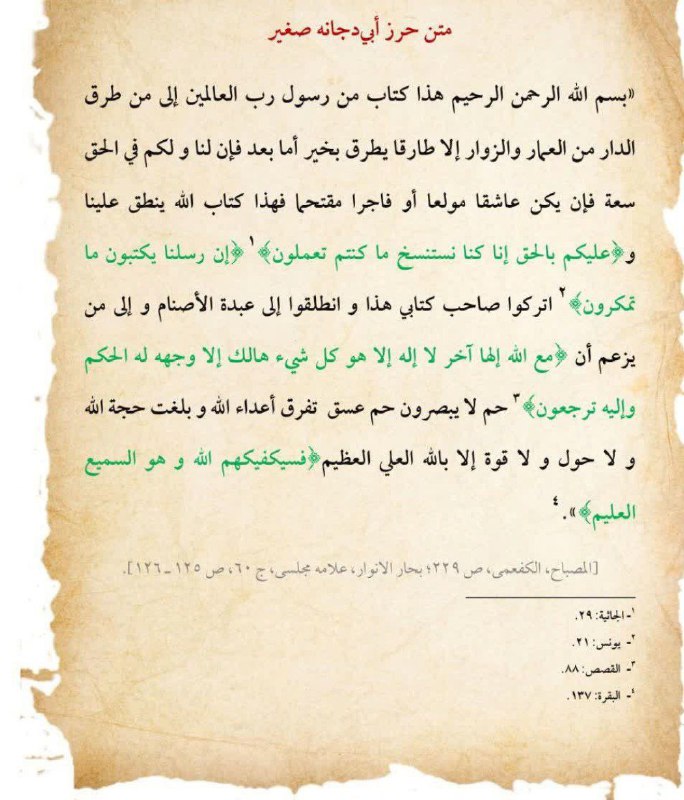 متن حرز أبي‌دجانه صغير
«بسم الله الرحمن الرحيم هذا كتاب من رسول رب العالمين إلى من طرق
الدار من العمار والزوار إلا طارقا يطرق بخير أما بعد فإن لنا و لكم في الحق
سعة فإن يكن عاشقا مولعا أو فاجرا مقتحما فهذا كتاب الله ينطق علينا
و﴿عليكم بالحق إنا كنا نستنسخ ما كنتم تعملون﴾١ ﴿إن رسلنا يكتبون ما
تمكرون﴾٢ اتركوا صاحب كتابي هذا و انطلقوا إلى عبدة الأصنام و إلى من
يزعم أن ﴿مع الله إلها آخر لا إله إلا هو كل شيء هالك إلا وجهه له الحكم
وإليه ترجعون﴾٣ حم لا يبصرون حم عسق تفرق أعداء الله و بلغت حجة الله
و لا حول و لا قوة إلا بالله العلي العظيم﴿فسيكفيكهم الله و هو السميع
العليم﴾».٤
[المصباح، الكفعمی، ص ٢٢٩؛ بحار الانوار، علامه مجلسی، ج ٦٠، ص ١٢٥ ـ ١٢٦].
١- الجاثية: ٢٩.
٢- يونس: ٢١.
٣- القصص: ٨٨.
٤- البقرة: ١٣٧.